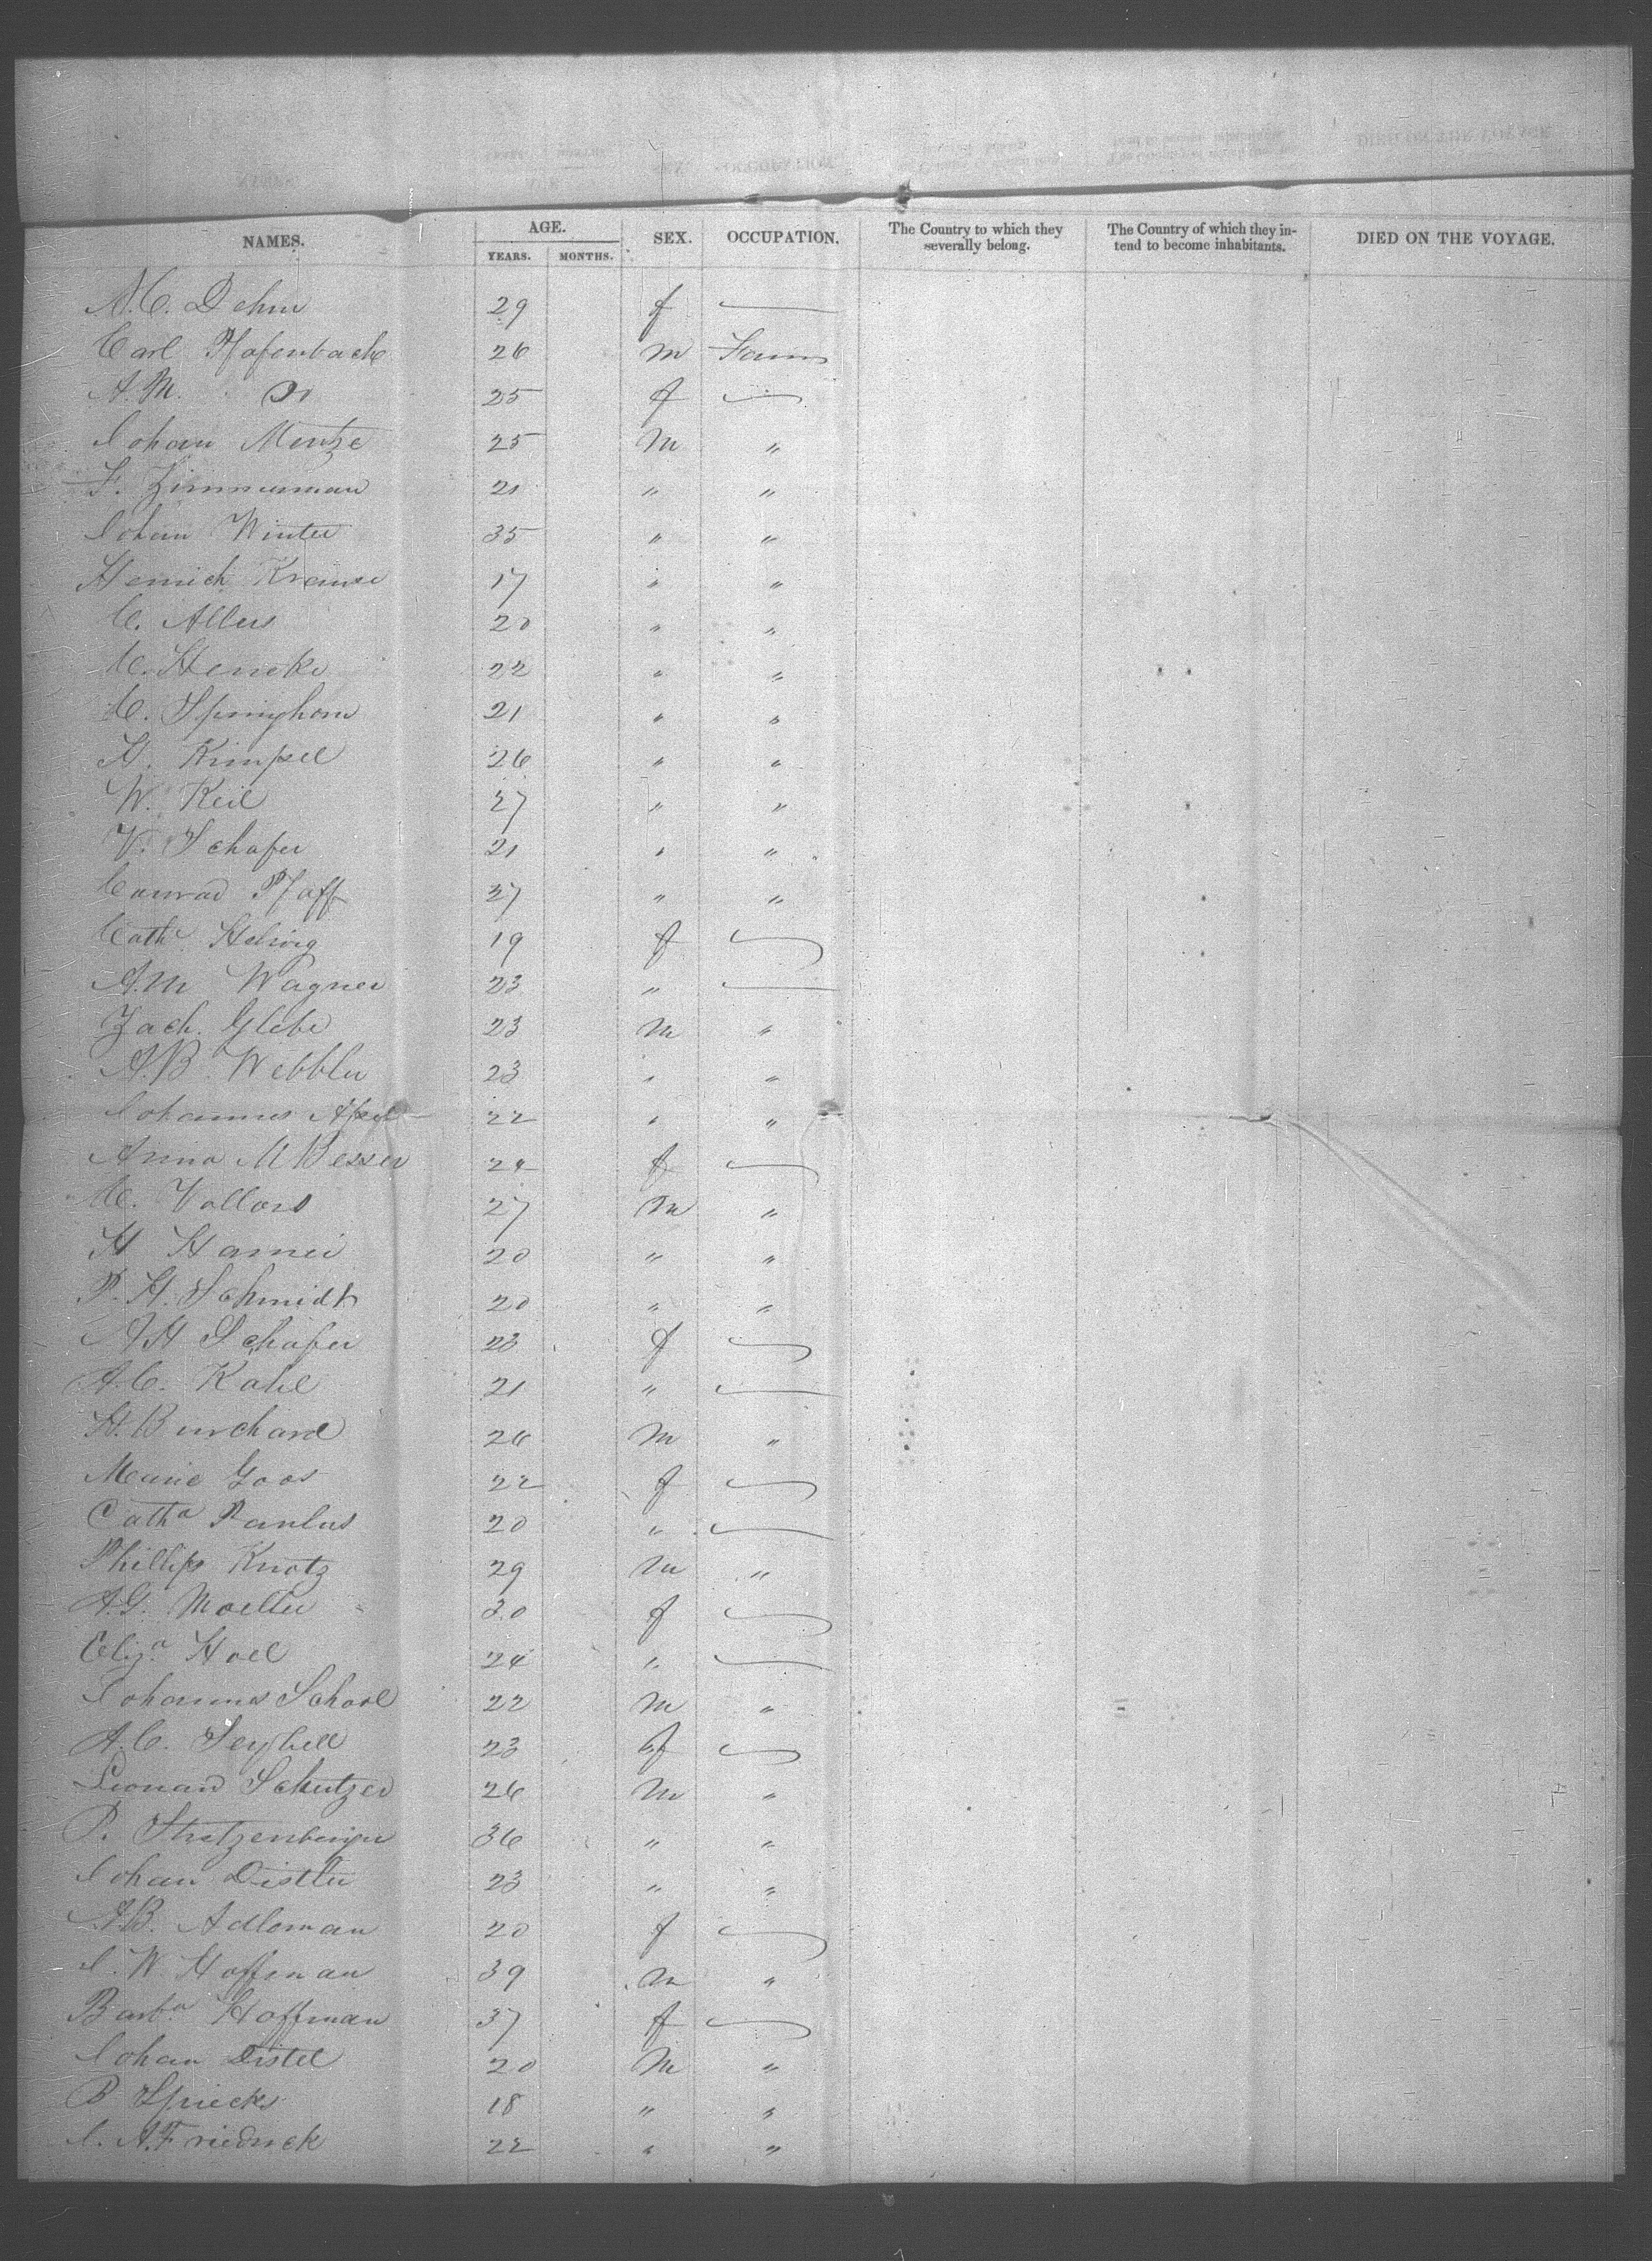 NAMES. AGE. SEX. OCCUPATION. The Country to which they severally belong. The Country of which they intend to become inhabitants. DIED ON THE VOYAGE.
YEARS. MONTHS.
A.C. Dehm 29 f
Carl Pfafenbach 26 m Farmr
A.M. Do 25 f
Johan Mentze 25 m "
F. Zimmerman 21 " "
Johan Winter 35 " "
Henrich Krause 17 " "
C. Allers 20 " "
C. Hencke 22 " "
C. Springhorn 21 " "
H. Kimpel 26 " "
W. Keil 27 " "
V. Schafer 21 " "
Conrad Pfaff 27 " "
Cath. Helwig 19 f
A.M Wagner 23 "
Zach. Glebe 23 m "
A.B. Webbler 23 " "
Johannes Apel 22 " "
Anna M Besser 24 f
C. Vollard 27 m "
H Hamei 20 " "
P. H. Schmidt 20 " "
A H Schafer 23 f
A.C. Kahl 21 "
H. Burchard 26 m "
Marie Goos 22 f
Catha Paulus 20 "
Phillip Knotz 29 m "
A.G. Moeller 30 f
Eliza Hoel 24 "
Johannes School 22 m "
A.C. Seybell 23 f
Leonard Schutzer 26 m "
P. Stratzenberger 36 " "
Johan Distler 23 " "
A.B. Adloman 20 f
J. W. Hoffman 39 m "
Barba Hoffman 37 f
Johan Distel 20 m "
B Spiecks 18 " "
J. A. Friedrick 22 " "